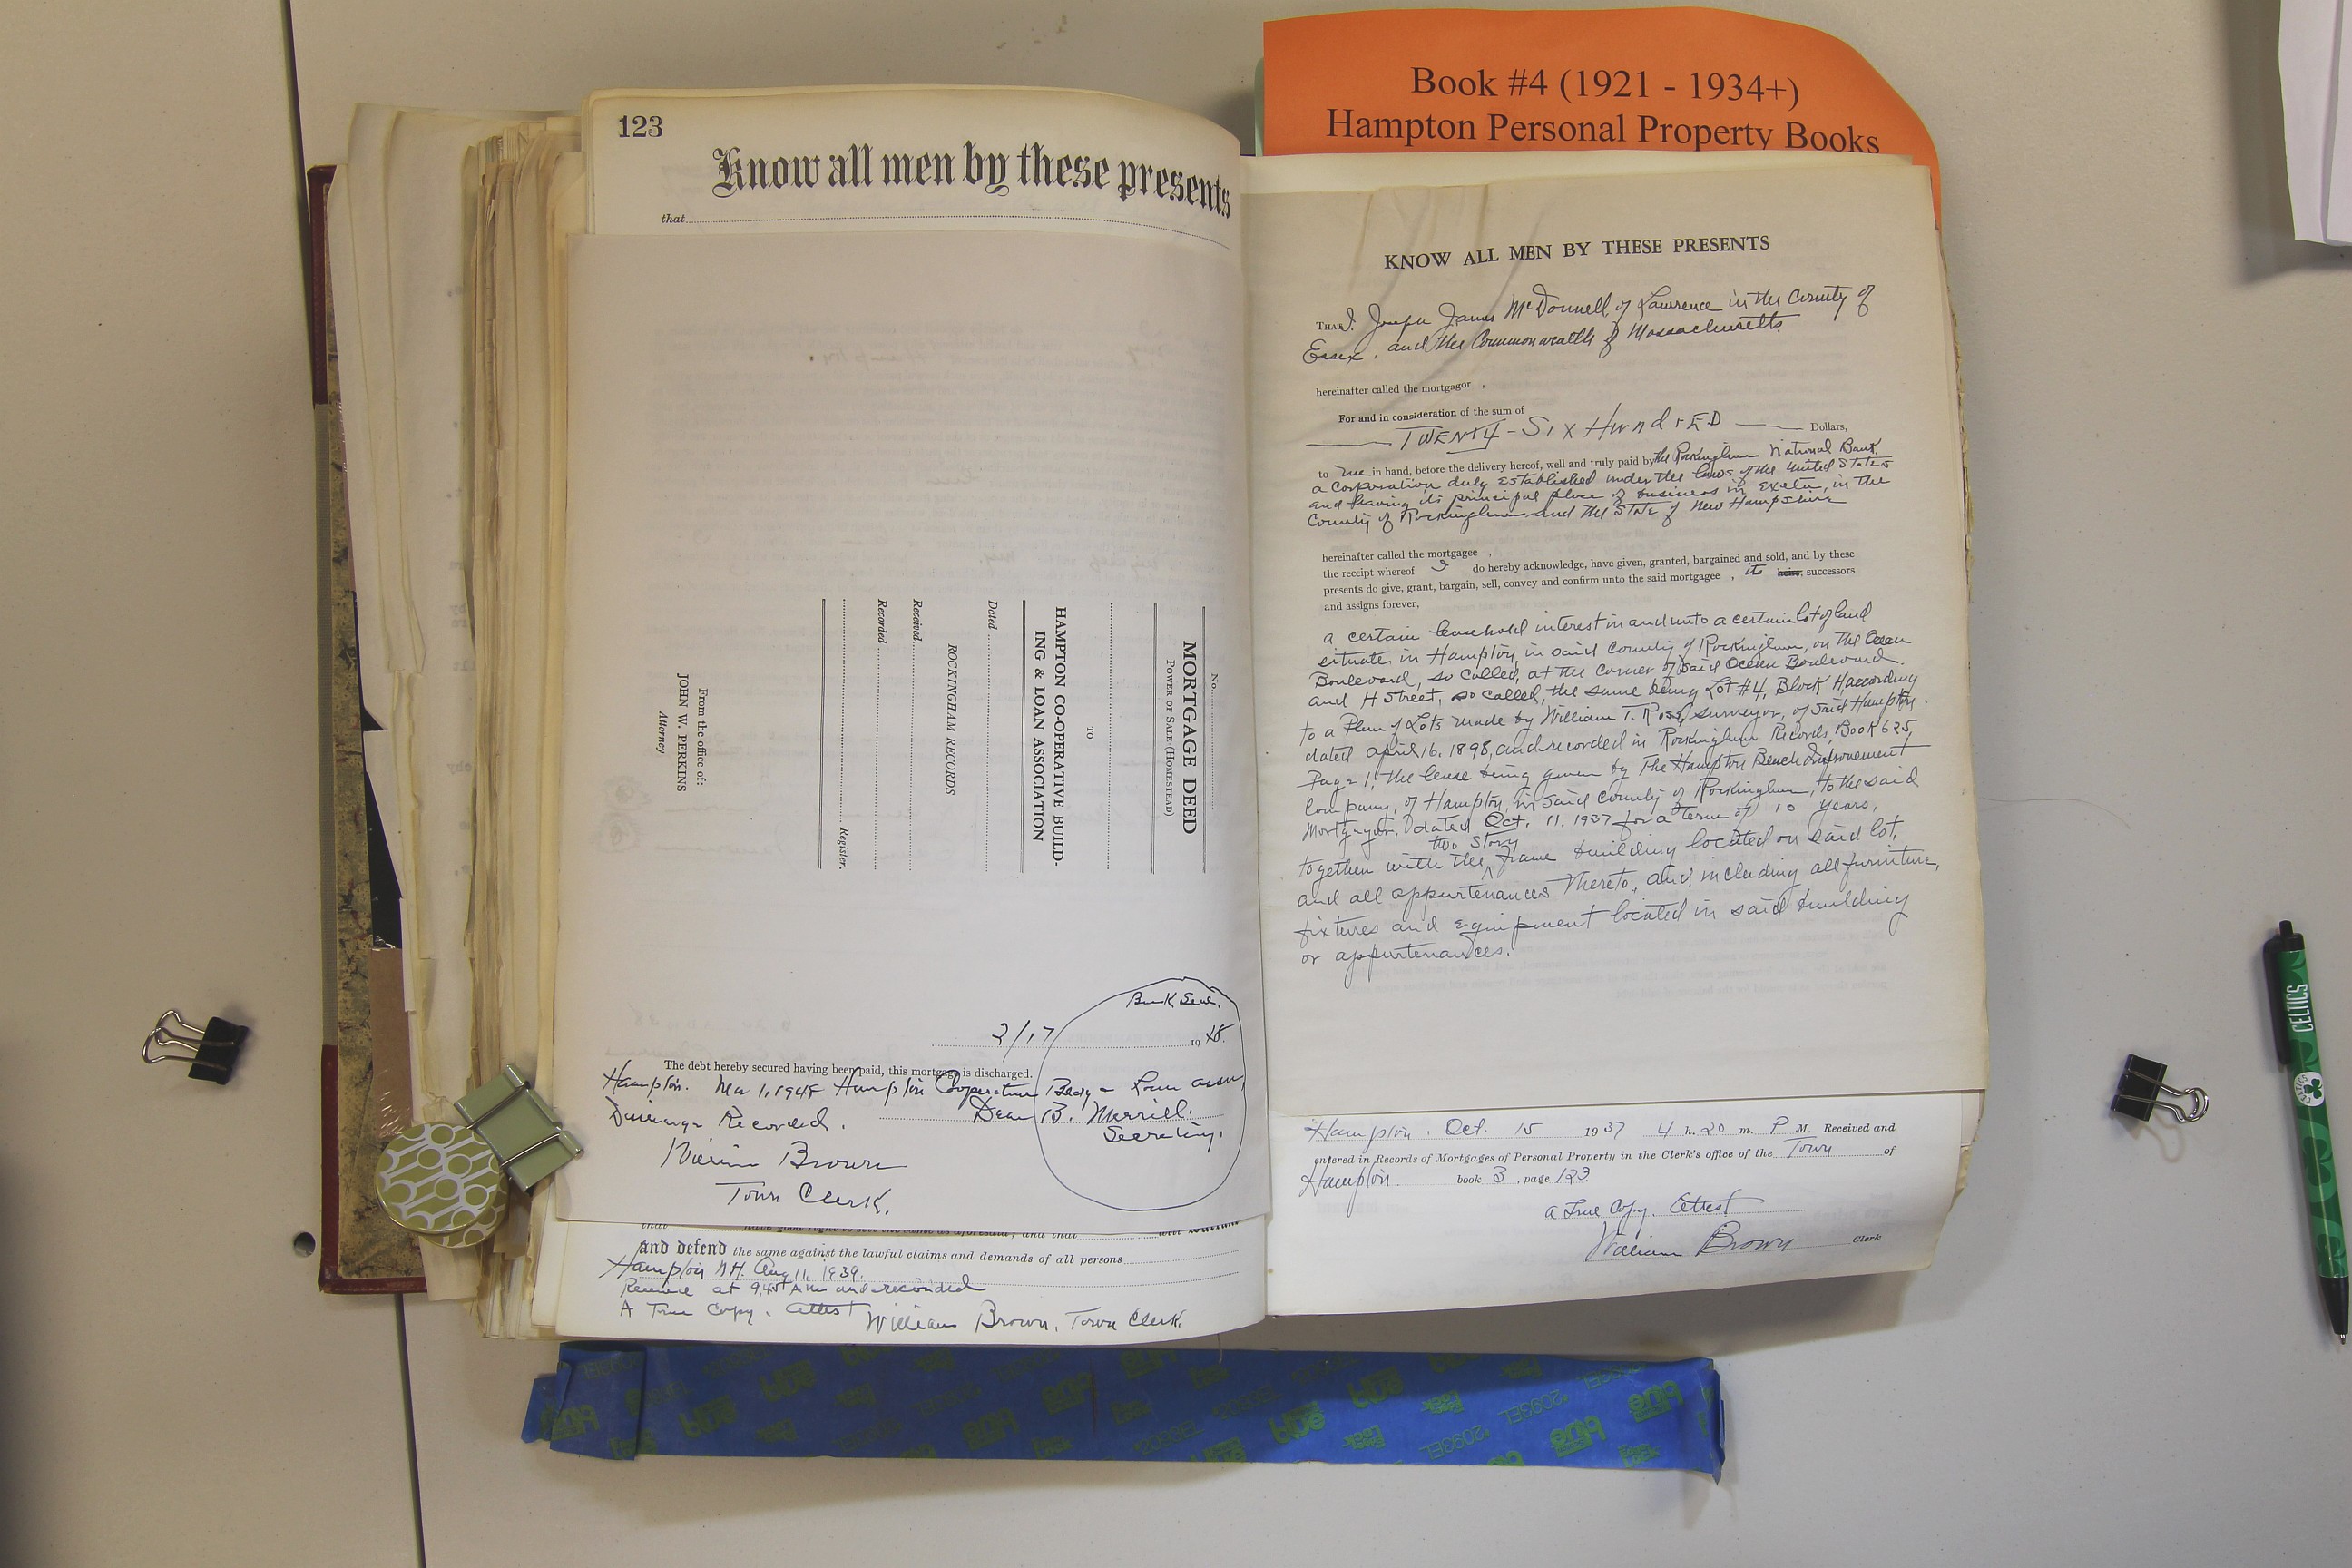 Book #4 (1921 - 1934+)
Hampton Personal Property Books
123
Know all men by these presents
that
No.
MORTGAGE DEED
POWER OF SALE (HOMESTEAD)
TO
HAMPTON CO-OPERATIVE BUILD-
ING & LOAN ASSOCIATION
Dated
ROCKINGHAM RECORDS
Received
Recorded
Register.
From the office of:
JOHN W. PERKINS
Attorney
Bank Seal.
2/17 19 48.
The debt hereby secured having been paid, this mortgage is discharged.
Hampton. Mar 1, 1948 Hampton Cooperative Bldg - Loan assn,
Discharge Recorded. Dean B. Merrill.
Secretary.
William Brown
Town Clerk.
and defend the same against the lawful claims and demands of all persons
Hampton N.H. Aug 11, 1939.
Receive at 9,45 A.M and recorded
A True Copy. Attest William Brown, Town Clerk.
KNOW ALL MEN BY THESE PRESENTS
THAT I. Joseph James McDonnell, of Lawrence in the County of
Essex, and the Commonwealth of Massachusetts.
hereinafter called the mortgagor ,
For and in consideration of the sum of
TWENTY-Six HundrED Dollars,
to me in hand, before the delivery hereof, well and truly paid by the Rockingham National Bank.
a corporation duly established under the laws of the United States
and having its principal place of business in Exeter, in the
County of Rockingham and the State of New Hampshire
hereinafter called the mortgagee ,
the receipt whereof I do hereby acknowledge, have given, granted, bargained and sold, and by these
presents do give, grant, bargain, sell, convey and confirm unto the said mortgagee , its heirs, successors
and assigns forever,
a certain leasehold interest in and unto a certain lot of land
situate in Hampton, in said County of Rockingham, on the Ocean
Boulevard, so called, at the corner of said Ocean Boulevard.
and H Street, so called, the same being Lot #4, Block H, according
to a Plan of Lots made by William T. Ross, surveyor, of said Hampton.
dated april 16, 1898, and recorded in Rockingham Records, Book 625,
Page 1, the lease being given by The Hampton Beach Improvement
Company, of Hampton, in said County of Rockingham, to the said
Mortgagor, dated Oct. 11. 1937 for a term of 10 years,
two story
together with the ^ frame building located on said lot,
and all appurtenances thereto, and including all furniture,
fixtures and equipment located in said building
or appurtenances.
Hampton. Oct. 15 1937 4 h. 20 m. P M. Received and
entered in Records of Mortgages of Personal Property in the Clerk's office of the Town of
Hampton. book 3 , page 123.
a True Copy. Attest
William Brown Clerk
CELTICS